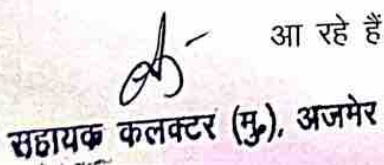 आ रहे हैं
सहायक कलक्टर (मु.), अजमेर